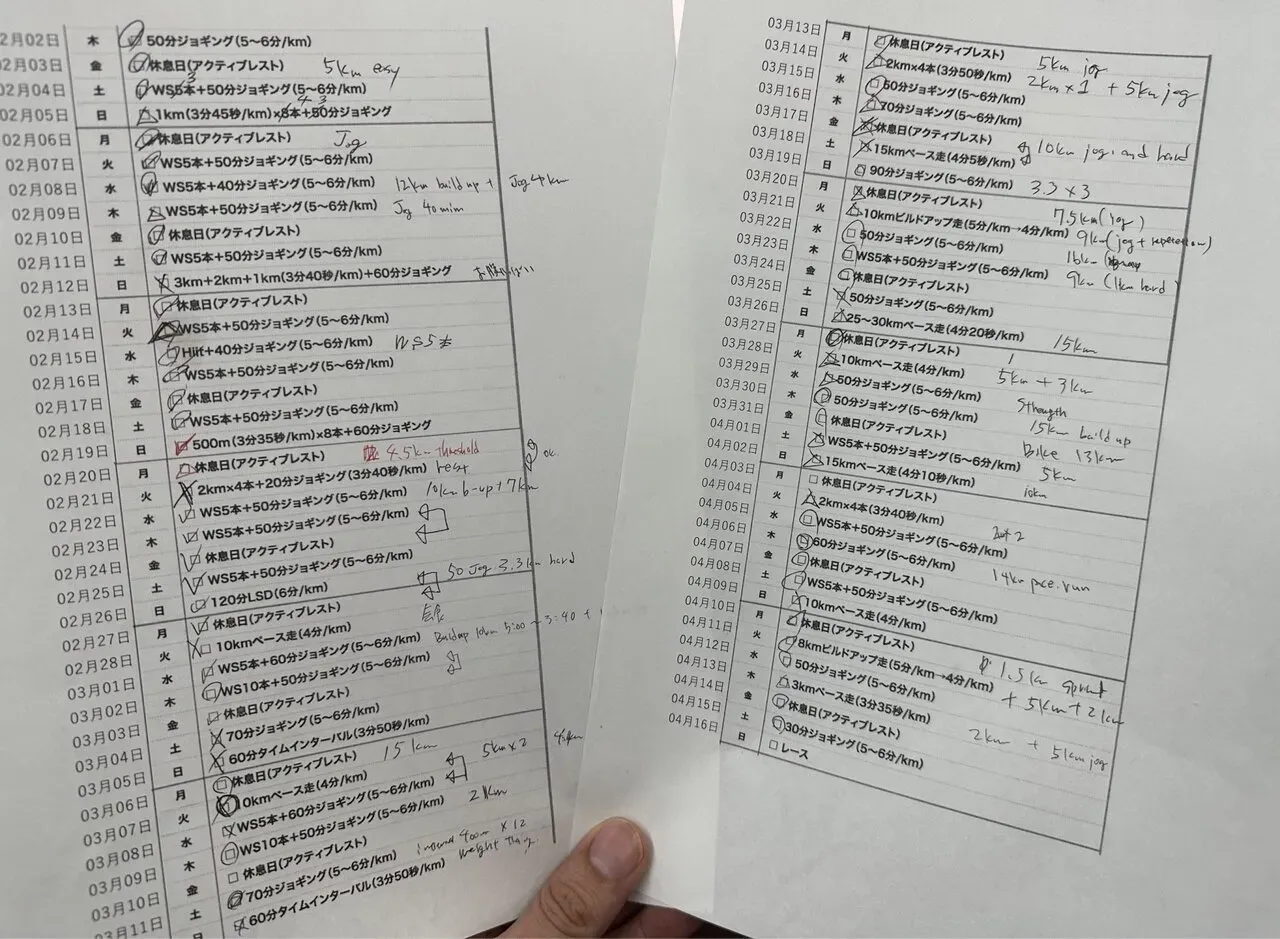 2月02日 木 50分ジョギング(5〜6分/km)
02月03日 金 休息日(アクティブレスト) 5km easy
02月04日 土 WS5本+50分ジョギング(5〜6分/km) 3
02月05日 日 1km(3分45秒/km)×8本+50分ジョギング 4 3
02月06日 月 休息日(アクティブレスト) Jog
02月07日 火 WS5本+50分ジョギング(5〜6分/km)
02月08日 水 WS5本+40分ジョギング(5〜6分/km) 12km build up + Jog 4km
02月09日 木 WS5本+50分ジョギング(5〜6分/km) Jog 40min
02月10日 金 休息日(アクティブレスト)
02月11日 土 WS5本+50分ジョギング(5〜6分/km)
02月12日 日 3km+2km+1km(3分40秒/km)+60分ジョギング
02月13日 月 休息日(アクティブレスト)
02月14日 火 WS5本+50分ジョギング(5〜6分/km)
02月15日 水 Hiit+40分ジョギング(5〜6分/km) WS5本
02月16日 木 WS5本+50分ジョギング(5〜6分/km)
02月17日 金 休息日(アクティブレスト)
02月18日 土 WS5本+50分ジョギング(5〜6分/km)
02月19日 日 500m(3分35秒/km)×8本+60分ジョギング
02月20日 月 休息日(アクティブレスト) 4.5km threshold
02月21日 火 2km×4本+20分ジョギング(3分40秒/km) rest ok
02月22日 水 WS5本+50分ジョギング(5〜6分/km) 10km b-up+7km
02月23日 木 WS5本+50分ジョギング(5〜6分/km)
02月24日 金 休息日(アクティブレスト)
02月25日 土 WS5本+50分ジョギング(5〜6分/km)
02月26日 日 120分LSD(6分/km) 50 Jog 3.3km hard
02月27日 月 休息日(アクティブレスト)
02月28日 火 10kmペース走(4分/km)
03月01日 水 WS5本+60分ジョギング(5〜6分/km) Buildup 10km 5:00~3:40 +
03月02日 木 WS10本+50分ジョギング(5〜6分/km)
03月03日 金 休息日(アクティブレスト)
03月04日 土 70分ジョギング(5〜6分/km)
03月05日 日 60分タイムインターバル(3分50秒/km)
03月06日 月 休息日(アクティブレスト) 15km
03月07日 火 10kmペース走(4分/km) 5km×2
03月08日 水 WS5本+60分ジョギング(5〜6分/km)
03月09日 木 WS10本+50分ジョギング(5〜6分/km) 21km
03月10日 金 休息日(アクティブレスト)
03月11日 土 70分ジョギング(5〜6分/km) 400m × 12
日 60分タイムインターバル(3分50秒/km) weight
03月13日 月 休息日(アクティブレスト) 5km jog
03月14日 火 2km×4本(3分50秒/km) 2km×1 + 5km jog
03月15日 水 50分ジョギング(5〜6分/km)
03月16日 木 70分ジョギング(5〜6分/km)
03月17日 金 休息日(アクティブレスト) 10km jog. and hard
03月18日 土 15kmペース走(4分5秒/km)
03月19日 日 90分ジョギング(5〜6分/km) 3.3×3
03月20日 月 休息日(アクティブレスト) 7.5km(jog)
03月21日 火 10kmビルドアップ走(5分/km→4分/km) 9km(jog+repetetion)
03月22日 水 50分ジョギング(5〜6分/km) 16km
03月23日 木 WS5本+50分ジョギング(5〜6分/km) 9km(1km hard)
03月24日 金 休息日(アクティブレスト)
03月25日 土 50分ジョギング(5〜6分/km)
03月26日 日 25〜30kmペース走(4分20秒/km) 15km
03月27日 月 休息日(アクティブレスト)
03月28日 火 10kmペース走(4分/km) 5km+3km
03月29日 水 50分ジョギング(5〜6分/km) Strength
03月30日 木 50分ジョギング(5〜6分/km) 15km build up
03月31日 金 休息日(アクティブレスト) Bike 13km
04月01日 土 WS5本+50分ジョギング(5〜6分/km) 5km
04月02日 日 15kmペース走(4分10秒/km) 10km
04月03日 月 休息日(アクティブレスト)
04月04日 火 2km×4本(3分40秒/km)
04月05日 水 WS5本+50分ジョギング(5〜6分/km)
04月06日 木 60分ジョギング(5〜6分/km) 14km pace.run
04月07日 金 休息日(アクティブレスト)
04月08日 土 WS5本+50分ジョギング(5〜6分/km)
04月09日 日 10kmペース走(4分/km)
04月10日 月 休息日(アクティブレスト)
04月11日 火 8kmビルドアップ走(5分/km→4分/km) 1.5km sprint
04月12日 水 50分ジョギング(5〜6分/km) + 5km+2km
04月13日 木 3kmペース走(3分35秒/km)
04月14日 金 休息日(アクティブレスト) 2km + 5km jog
04月15日 土 30分ジョギング(5〜6分/km)
04月16日 日 レース